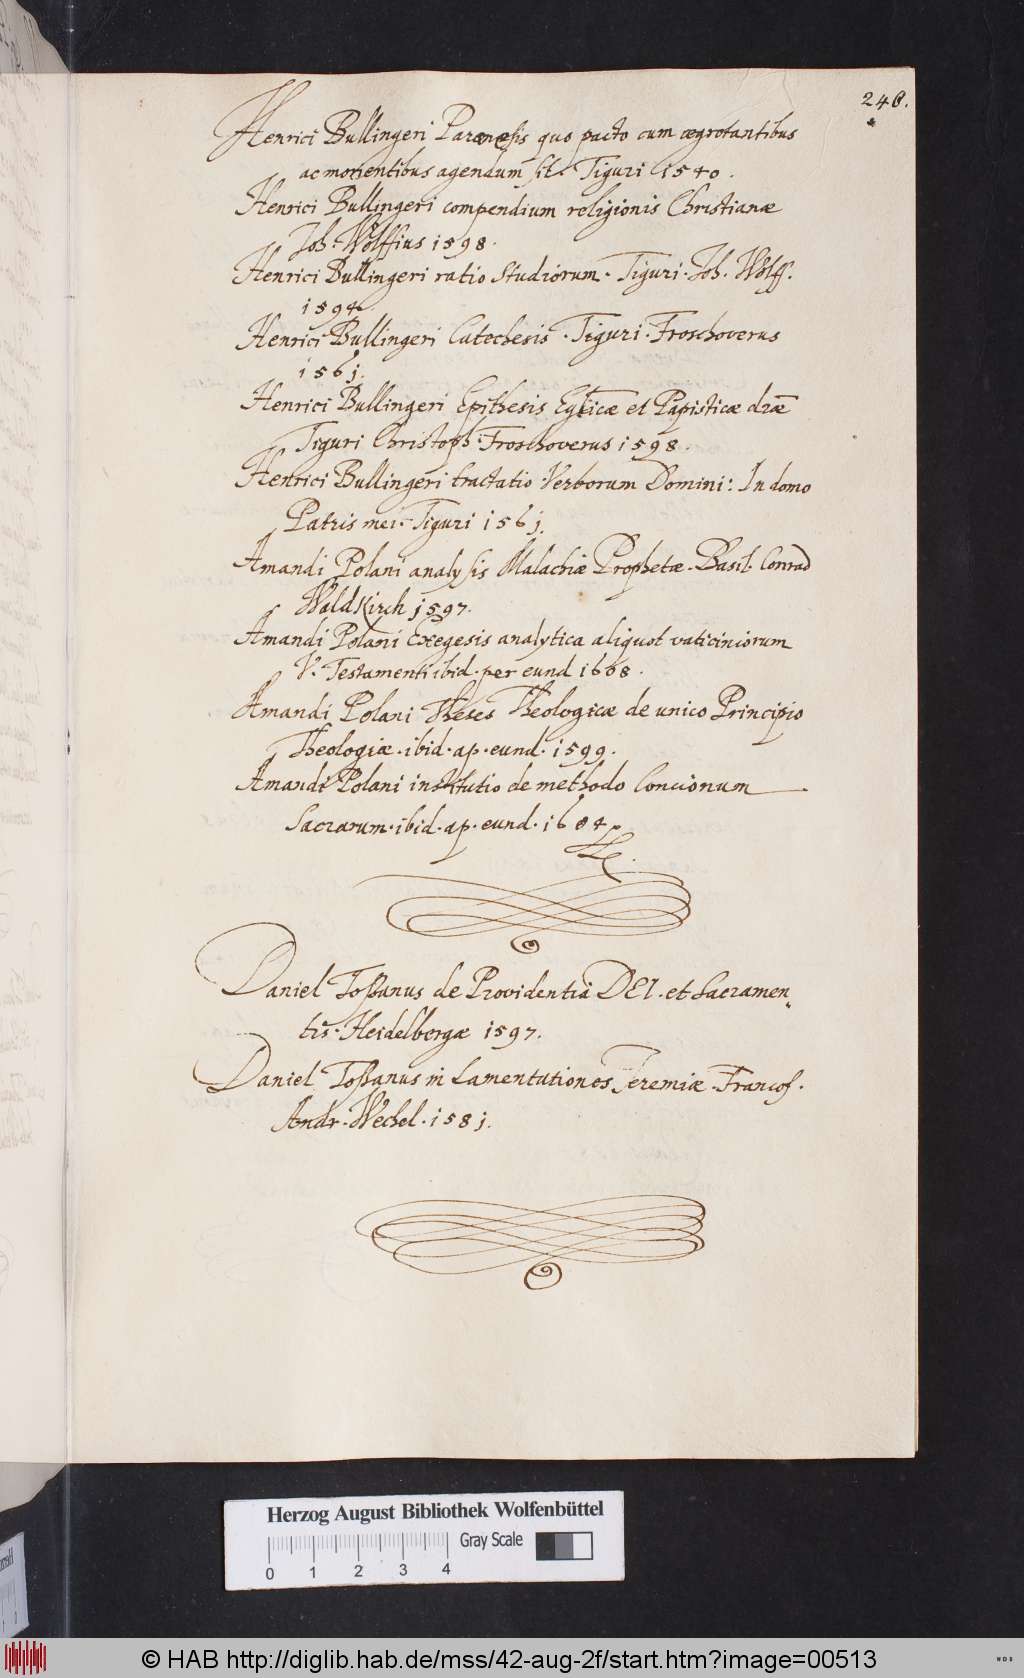 246.
Henrici Bullingeri Parænesis quo pacto cum ægrotantibus
ac morientibus agendum sit. Tiguri 1540.
Henrici Bullingeri compendium religionis Christianæ
Joh. Wolffius 1598.
Henrici Bullingeri ratio Studiorum. Tiguri. Joh. Wolff.
1594.
Henrici Bullingeri Catechesis. Tiguri. Froschoverus
156j.
Henrici Bullingeri Epithesis et Papisticæ
Tiguri Christoph. Froschoverus 1598.
Henrici Bullingeri tractatio Verborum Domini: In domo
Patris mei. Tiguri 156j.
Amandi Polani analysis Malachiæ Prophetæ. Basil. Conrad
Waldkirch j597.
Amandi Polani Exegesis analytica aliquot vaticiniorum
V. Testamenti ibid. per eund 1608.
Amandi Polani Theses Theologicæ de unico Principio
Theologiæ. ibid. ap. eund. 1599.
Amandi Polani institutio de methodo Concionum
Sacrarum. ibid. ap. eund. 1604.
Daniel Toßanus de Providentia DEI. et Sacramen„
tis. Heidelbergæ 1597.
Daniel Toßanus in Lamentationes Jeremiæ. Francof.
Andr. Wechel. 158j.
Herzog August Bibliothek Wolfenbüttel
Gray Scale
0 1 2 3 4
© HAB http://diglib.hab.de/mss/42-aug-2f/start.htm?image=00513